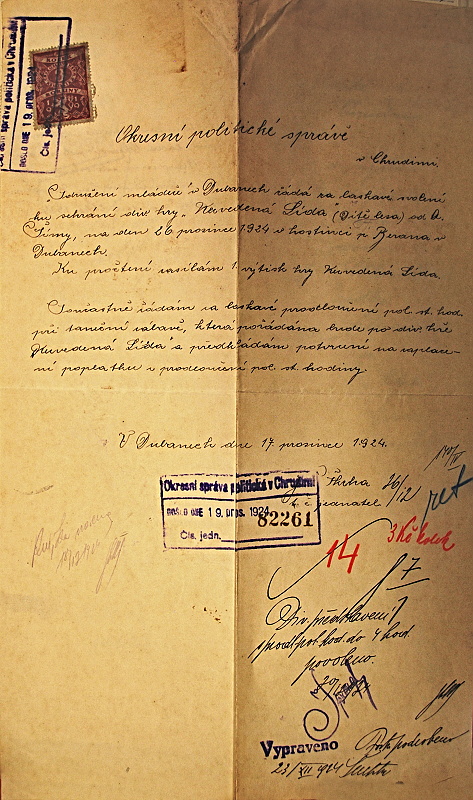 Okresní správa politická v Chrudimi
DOŠLO DNE 19. pros. 1924
Čís. jedn.
Okresní politické správě
v Chrudimi.
"Sdružení mládeže" v Dubanech žádá za laskavé svolení
ku sehrání div. hry "Nevedená Lída (Dítě lesa) od A.
Jímy, na den 26 prosince 1924 v hostinci p. Berana v
Dubanech.
Ku pročtení zasílám 1. výtisk hry Lída.
Současně žádám za laskavé prodloužení pol. st. hod.
při taneční zábavě, která pořádána bude po div. hře
Lída" a předkládám potvrzení na zaplace-
ní poplatku z prodloužení pol. st. hodiny.
V Dubanech dne 17. prosince 1924.
26/12
jednatel
Okresní správa politická v Chrudimi
DOŠLO DNE 19. pros. 1924
82261
Čís. jedn.
14
3 Kč kolek
7
Div. představení
prodl. pol. hod. do 4 hod.
povoleno.
Vypraveno
23/XII 1924